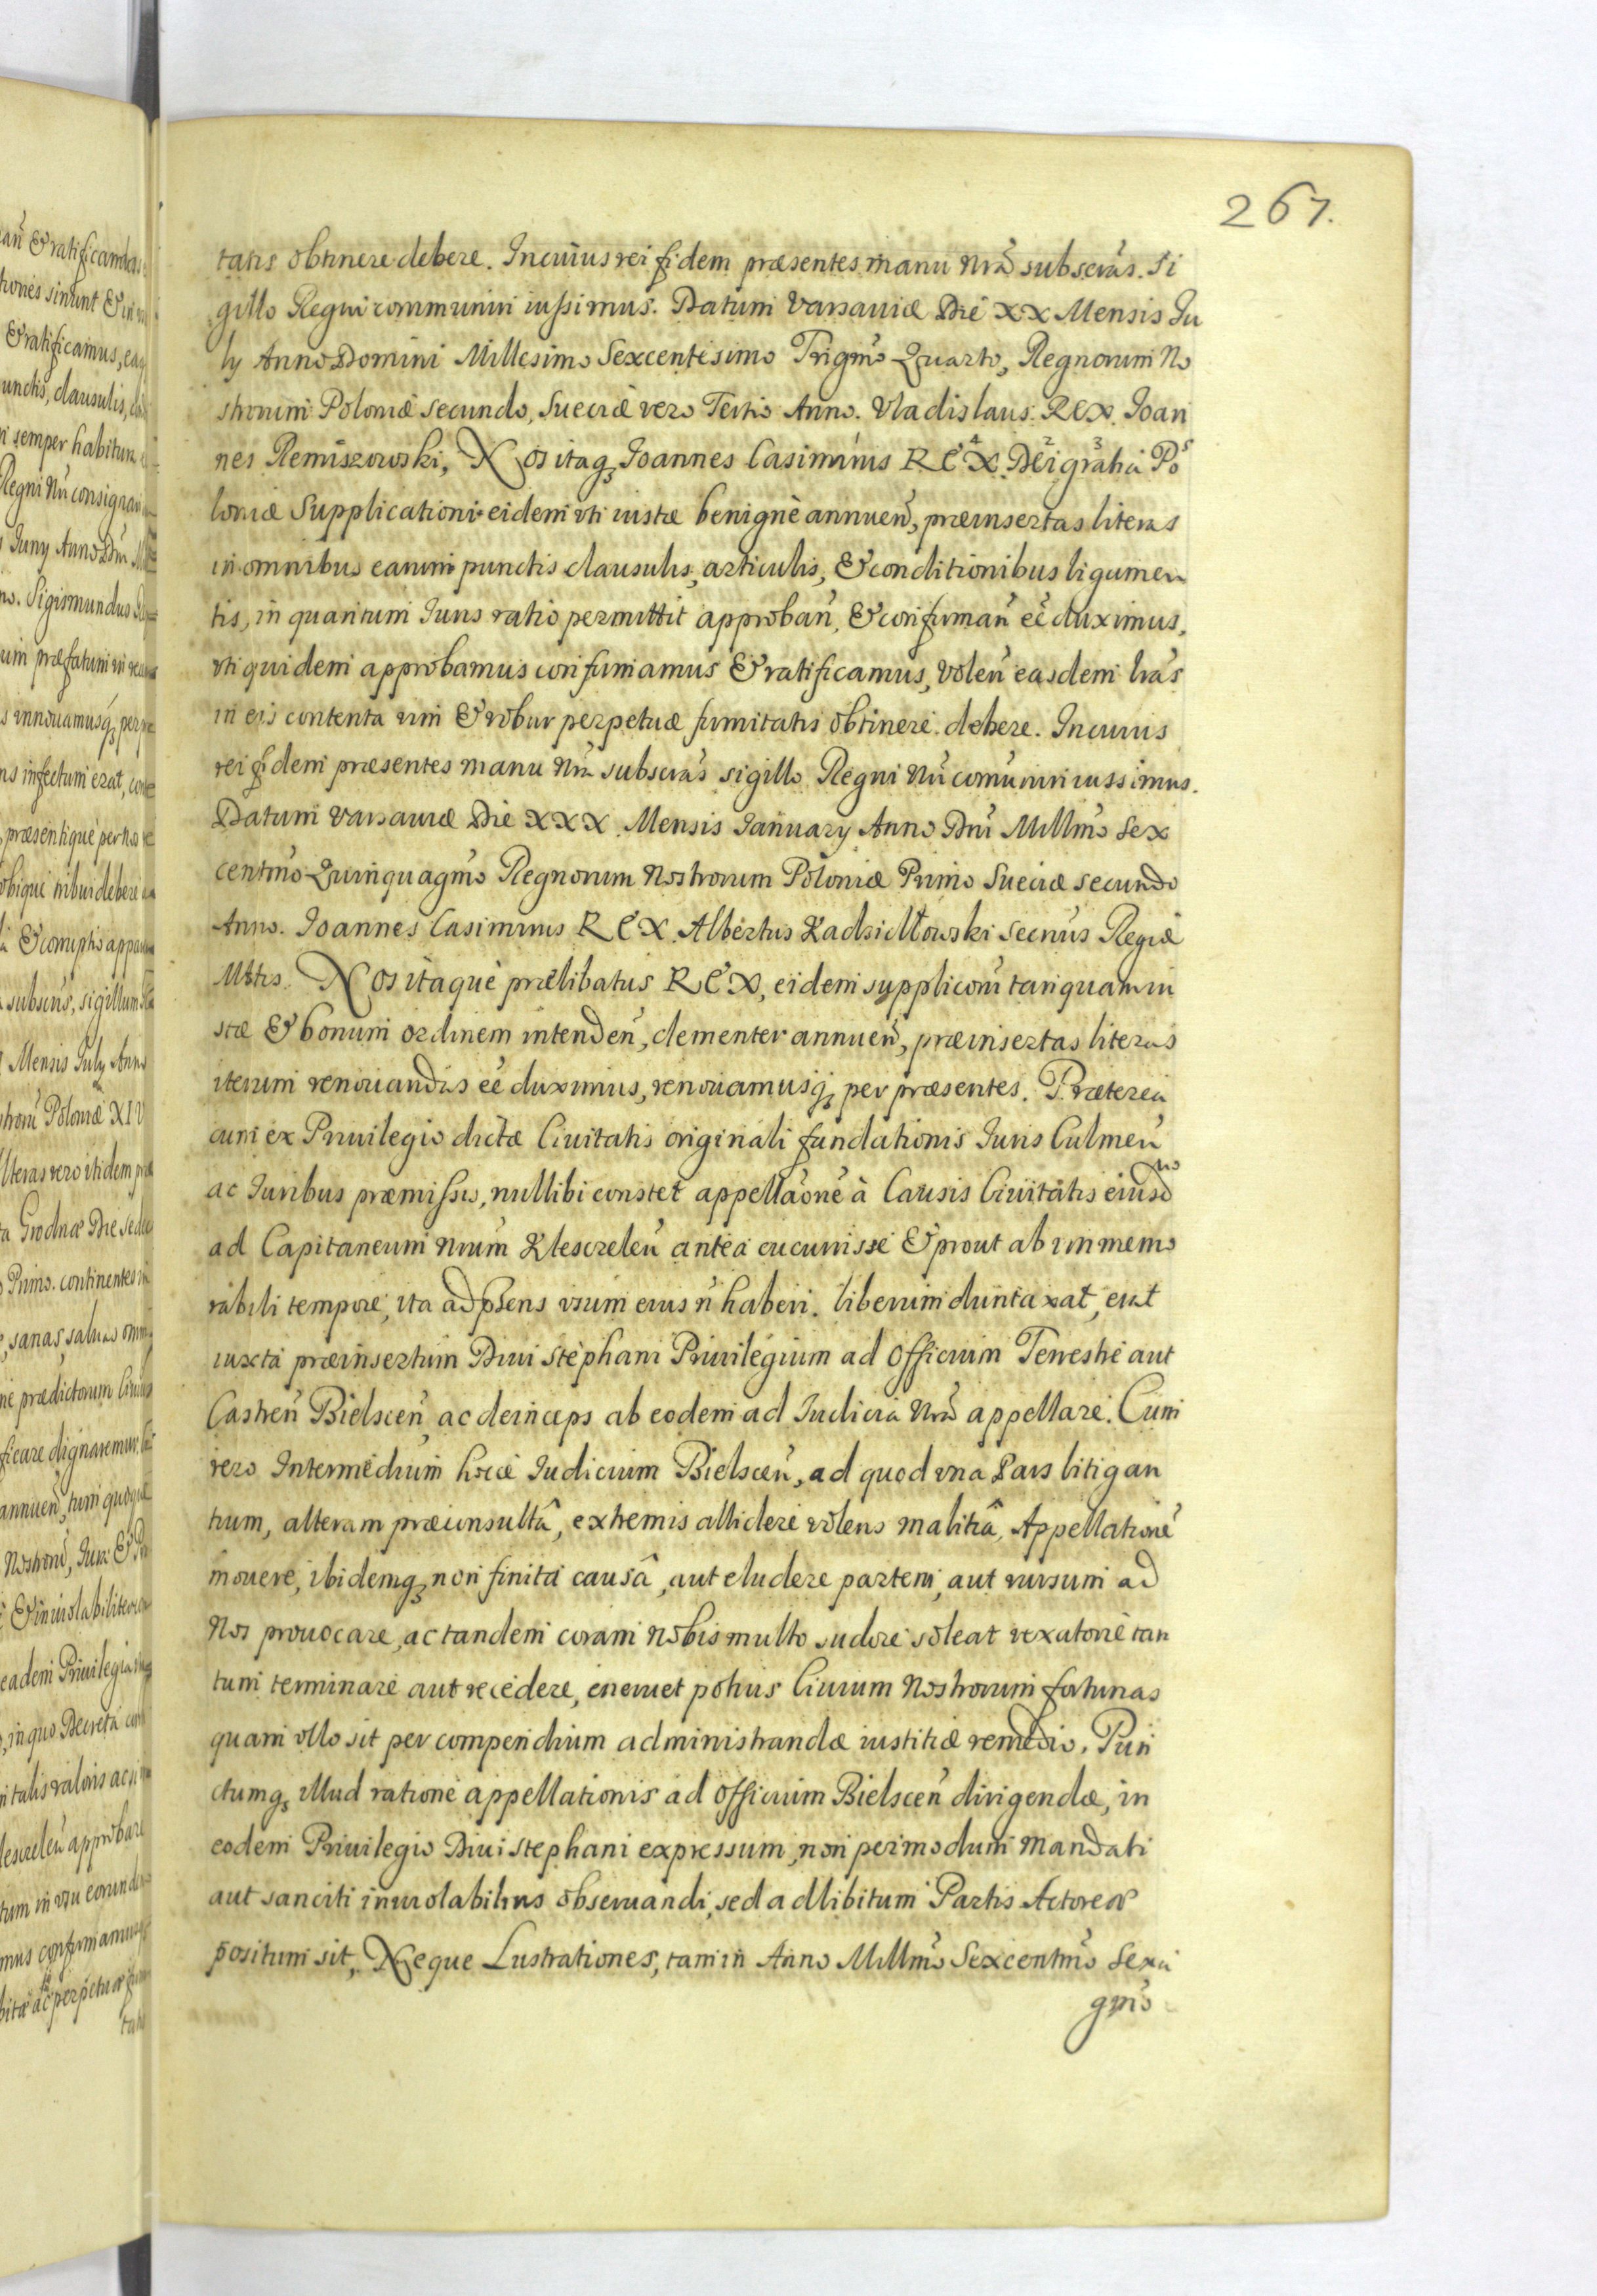 267.
tatis obtinere debere. In cuius rei fidem præsentes manu nrã subscrãs. Si
gillo Regni communiri iussimus. Datum Varsaviæ Die XX Mensis Ju
ly Anno Domini Millesimo Sexcentesimo Trigmo Quarto, Regnorum No
strorum Poloniæ secundo, Sueciæ vero Tertio Anno. Vladislaus REX. Joan
nes Remiszowski, Nos itaq Joannes Casimirus REX Dei gratia Po
loniæ Supplicationi eidem uti iustæ benignè annuen, præinsertas literas
in omnibus earum punctis clausulis, articulis, & conditionibus ligumen
tis, in quantum Juris ratio permittit approban, & confirman eē duximus,
uti quidem approbamus confirmamus & ratificamus, volen easdem lrãs
in eis contenta vim & robur perpetuæ firmitatis obtinere debere. In cuius
rei fidem præsentes manu nrã subscrãs sigillo Regni Nri comuniri iussimus.
Datum Varsaviæ Die XXX Mensis January Anno Dni Millmo Sex
centmo Quinquagmo Regnorum Nostrorum Poloniæ Primo Sueciæ secundo
Anno. Joannes Casimirus REX. Albertus Kadzidłowski Secrius Regiæ
Mttis. Nos itaque prælibatus REX, eidem supplicaoni tanquam iu
stæ & bonum ordinem intenden, clementer annuen, præinsertas literas
iterum renovandas eē duximus, renovamusq per præsentes. Præterea
cum ex Privilegio dictæ Civitatis originali fundationis Juris Culmen
ac Juribus præmissis, nullibi constet appellãonē à Causis Civitatis eiusd
ad Capitaneum Nrum Klesczelen antea cucurrisse & prout ab immemo
rabili tempore, ita ad præsens usum eius ñ haberi. liberum duntaxat, erat
iuxta præinsertum Divi Stephani Privilegium ad Officium Terrestre aut
Castren Bielscen, ac deinceps ab eodem ad Judicia Nrã appellare. Cum
vero Intermedium hocce Judicium Bielscen, ad quod una Pars litigan
tium, alteram præconsultâ, extremis allidere volens malitiâ, Appellationē
movere, ibidemq non finita causâ, aut eludere partem, aut rursum ad
Nos provocare, ac tandem coram Nobis multo sudore soleat vexatorie tan
tum terminare aut recedere, enervet potius Civium Nostrorum fortunas
quam ullo sit per compendium administrandæ iustitiæ remedio. Pun
ctumq illud ratione appellationis ad Officium Bielscen dirigendæ, in
eodem Privilegio Divi Stephani expressum, non per modum Mandati
aut sanciti inviolabilius observandi, sed ad libitum Partis Actoreæ
positum sit, Neque Lustrationes, tam in Anno Millmo Sexcentmo Sexa
gmo